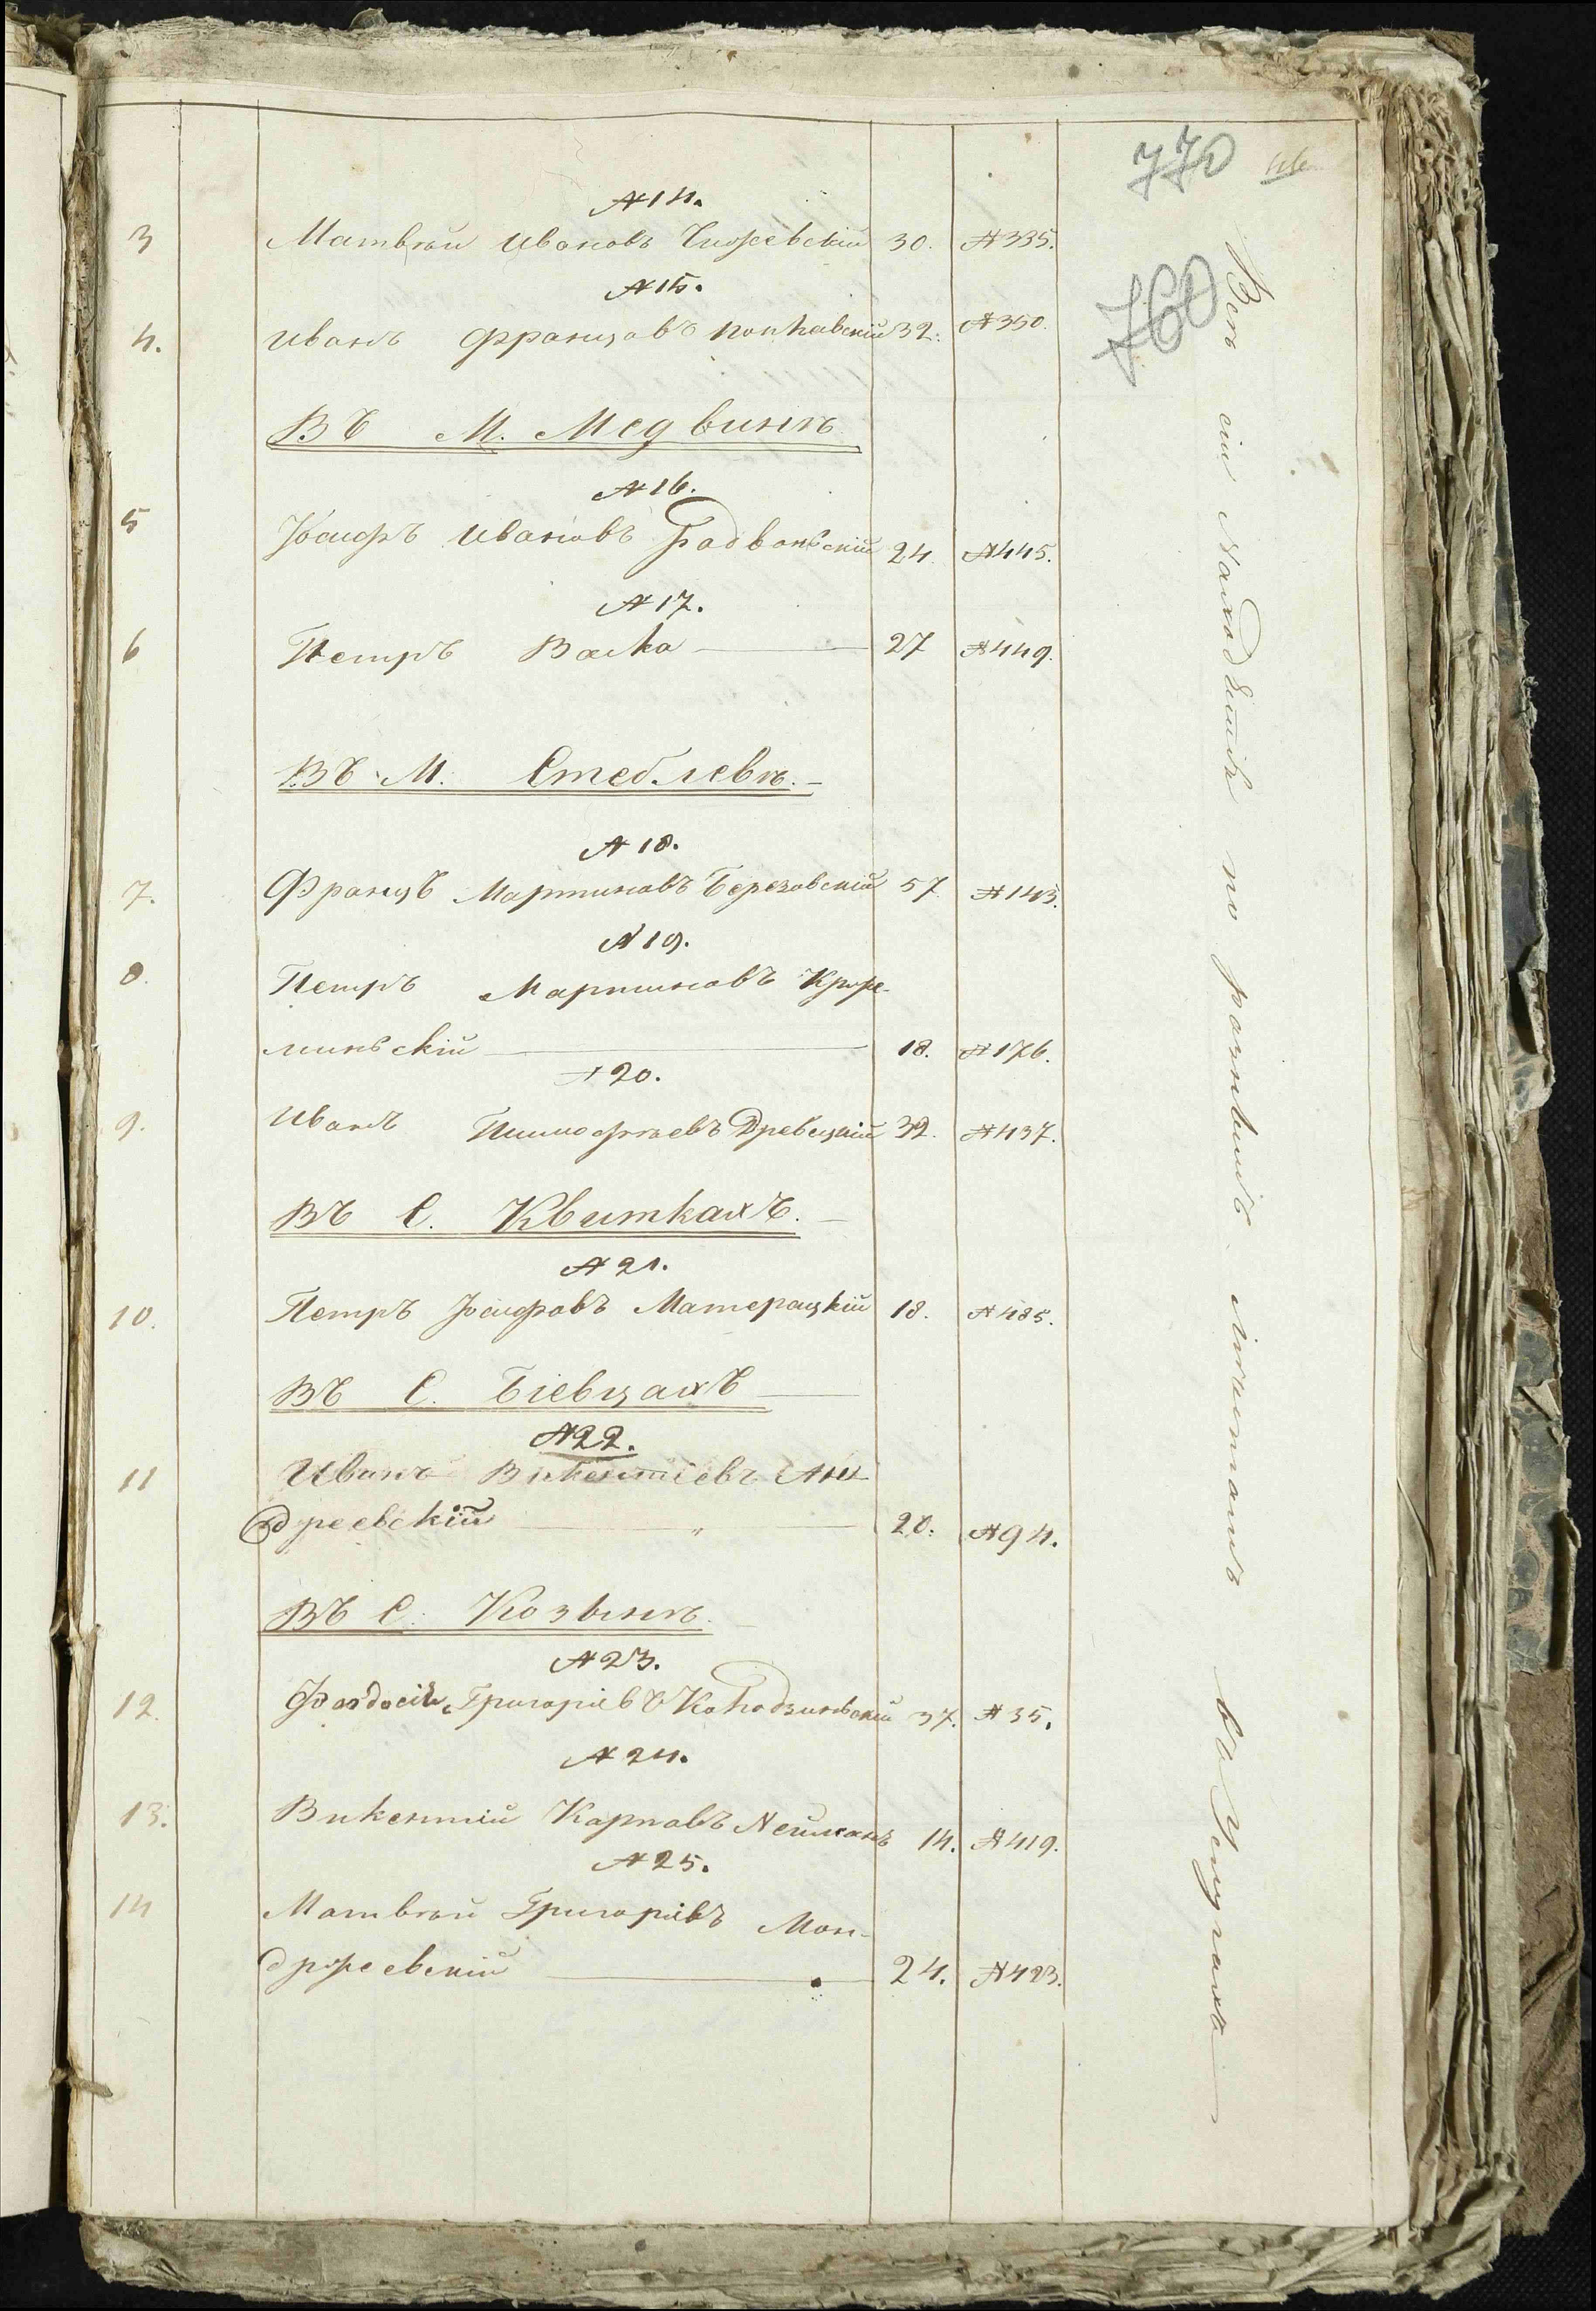 770
46
760
№ 14.
3 Матвѣй Ивановъ Чижевскій 30. № 335.
№ 15.
4. Иванъ Францовъ 32. № 350.
Въ М. Медвинѣ
№ 16.
5 Іосифъ Ивановъ Гадваньскій 24 № 445.
№ 17.
6 Петръ Васка 27 № 449.
Въ М. Стеблевѣ.
№ 18.
7. Францъ Мартиновъ Березовскій 57 № 143.
№ 19.
8. Петръ Мартиновъ Крже-
миньскій 18. № 176.
№ 20.
9. Иванъ Тимофѣевъ Древецкій 32. № 437.
Въ С. Квиткахъ.
№ 21.
10. Петръ Іосифовъ Матерацкій 18. № 485.
Въ С. Біевцахъ
№ 22.
11 Иванъ Викентіевъ Ан-
дреевскій 20. № 94.
Въ С. Козинѣ.
№ 23.
12. Феодосій Григоріевъ Колодзинскій 37. № 35.
№ 24.
13. Викентій Карповъ Нейманъ 14. № 419.
№ 25.
14 Матвѣй Григоріевъ Мон-
држеевскій 24. № 423.
Всѣ сіи находятся по разнымъ мѣстамъ въ